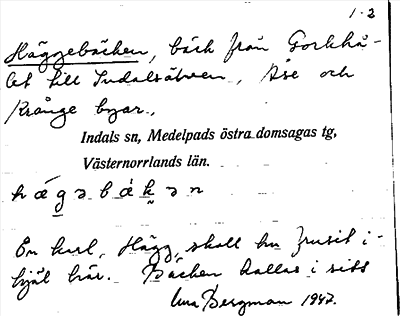 1-2
Häggebäcken, bäck från Gorkhå-
let till Indalsälven, Åse och
Krånge byar.,
Indals sn, Medelpads östra domsagas tg,
Västernorrlands län.
hägəbäkən
En karl, Hägg, skall ha frusit i-
hjäl här. Bäcken kallas i sitt
Una Bergman 1947.